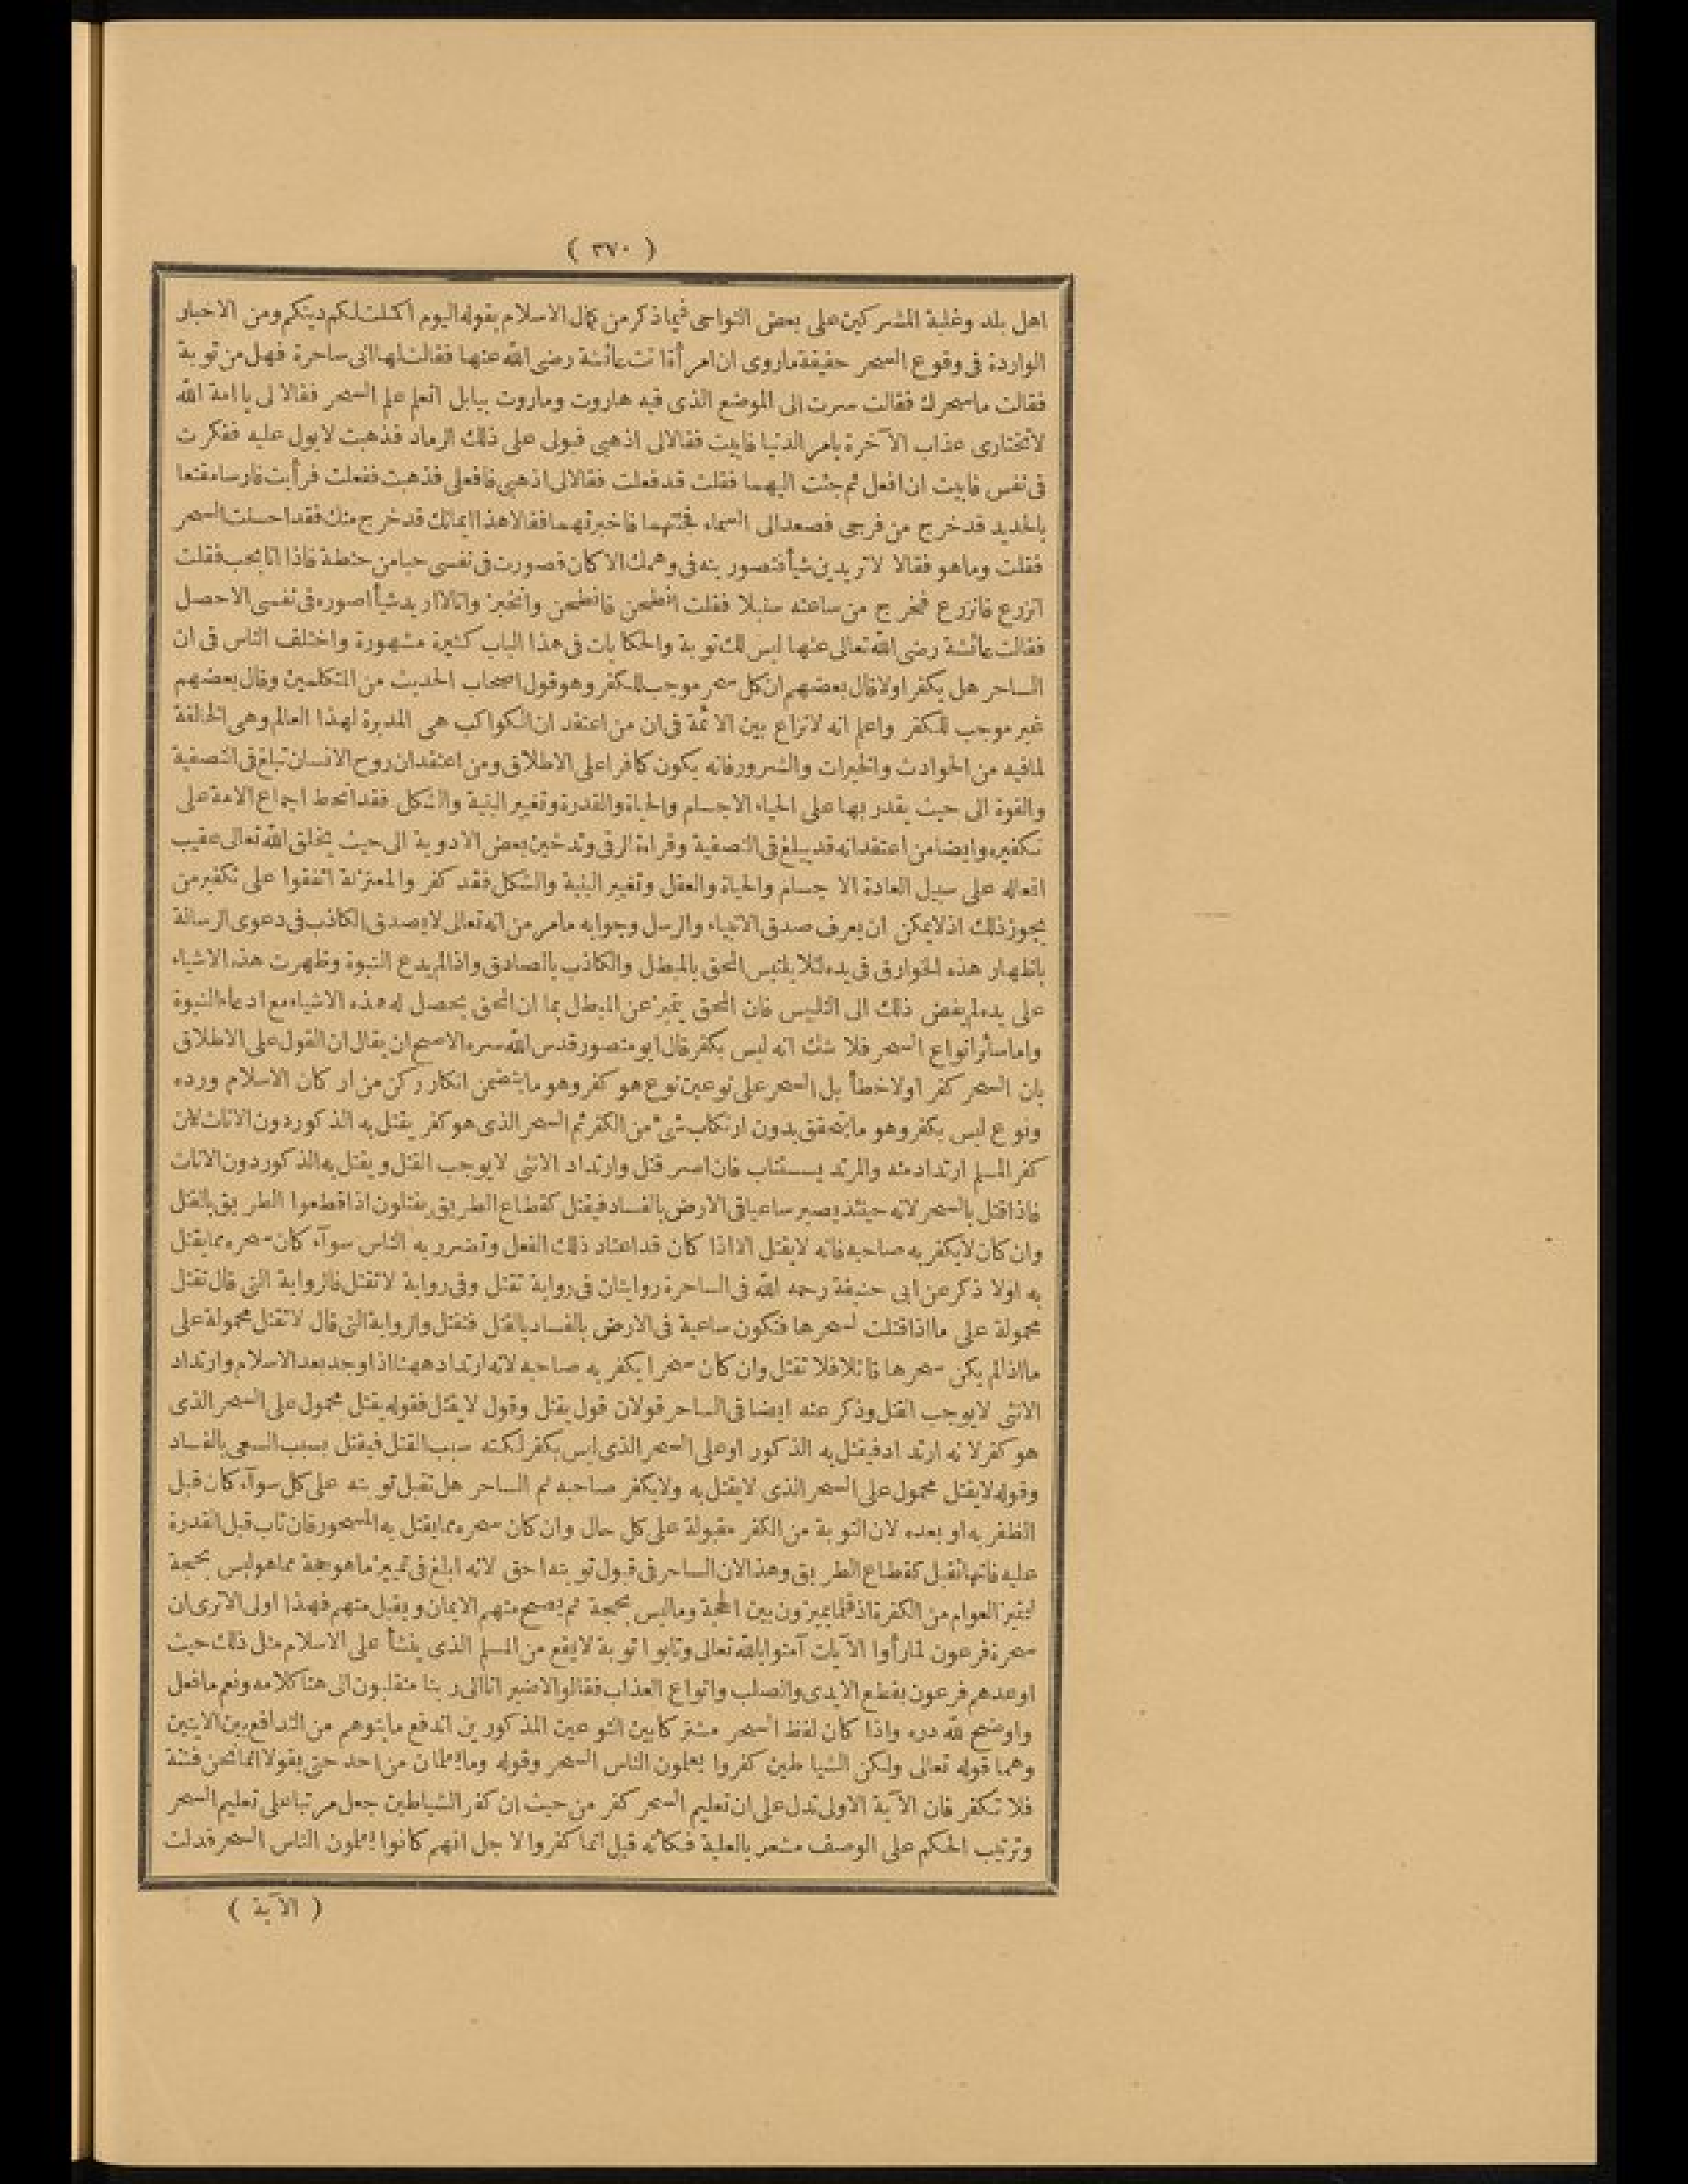 ( ٣٧٠ )
اهل بلد وغلبة المشركين على بعض النواحى فيماذكر من كمال الاسلام بقوله اليوم اكملت لكم دينكم ومن الاخبار
الواردة فى وقوع السحر حقيقة ماروى ان امرأة اتت عائشة رضى الله عنها فقالت لها انى ساحرة فهل من توبة
فقالت ماسحرك فقالت سرت الى الموضع الذى فيه هاروت وماروت ببابل اتعلم علم السحر فقالا لى يا امة الله
لاتختارى عذاب الآخرة بامر الدنيا فابيت فقالالى اذهبى فبولى على ذلك الرماد فذهبت لابول عليه ففكرت
فى نفسى فابيت ان افعل ثم جئت اليهما فقلت قدفعلت فقالالى اذهبى فافعلى فذهبت ففعلت فرأيت فارسا مقنعا
بالحديد قدخرج من فرجى فصعدالى السماء فجئتهما فاخبرتهما فقالا هذا ايمانك قدخرج منك فقد احسنت السحر
فقلت وماهو فقالا لاتريدين شيأ فتصورينه فى وهمك الا كان فصورت فى نفسى حبا من حنطة فاذا انا بحب فقلت
انزرع فانزرع فخرج من ساعته سنبلا فقلت انطحن فانطحن وانخبز وانالا اريد شيأ اصوره فى نفسى الاحصل
فقالت عائشة رضى الله تعالى عنها ليس لك توبة والحكايات فى هذا الباب كثيرة مشهورة واختلف الناس فى ان
الساحر هل يكفر اولا قال بعضهم ان كل سحر موجب للكفر وهو قول اصحاب الحديث من المتكلمين وقال بعضهم
غير موجب للكفر واعلم انه لانزاع بين الائمة فى ان من اعتقد ان الكواكب هى المدبرة لهذا العالم وهى الخالقة
لمافيه من الحوادث والخيرات والشرور فانه يكون كافرا على الاطلاق ومن اعتقد ان روح الانسان تبلغ فى التصفية
والقوة الى حيث يقدر بها على احياء الاجسام والحياة والقدرة وتغيير البنية والشكل فقد انحط اجماع الامة على
تكفيره وايضا من اعتقد انه قديبلغ فى التصفية وقراءة الرقى وتدخين بعض الادوية الى حيث يخلق الله تعالى عقيب
افعاله على سبيل العادة الاجسام والحياة والعقل وتغيير البنية والشكل فقد كفر والمعتزلة اتفقوا على تكفير من
يجوز ذلك اذلايمكن ان يعرف صدق الانبياء والرسل وجوابه مامر من انه تعالى لايصدق الكاذب فى دعوى الرسالة
باظهار هذه الخوارق فى يده لئلا يلتبس المحق بالمبطل والكاذب بالصادق واذالم يدع النبوة وظهرت هذه الاشياء
على يده لم يفض ذلك الى التلبيس فان المحق يتميز عن المبطل بما ان المحق يحصل له هذه الاشياء مع ادعاء النبوة
واما سائر انواع السحر فلا شك انه ليس بكفر قال ابو منصور قدس الله سره الاصح ان يقال ان القول على الاطلاق
بان السحر كفر اولا خطأ بل السحر على نوعين نوع هو كفر وهو مايتضمن انكار ركن من اركان الاسلام ورده
ونوع ليس بكفر وهو مايتحقق بدون ارتكاب شئ من الكفر ثم السحر الذى هو كفر يقتل به الذكور دون الاناث لان
كفر المسلم ارتداد منه والمرتد يستتاب فان اصر قتل وارتداد الانثى لايوجب القتل ويقتل به الذكور دون الاناث
فاذا قتل بالسحر لانه حينئذ يصير ساعيا فى الارض بالفساد فيقتل كقطاع الطريق يقتلون اذا قطعوا الطريق بالقتل
وان كان لايكفر به صاحبه فانه لايقتل الا اذا كان قد اعتاد ذلك الفعل وتضرر به الناس سوآء كان سحره مما يقتل
به اولا ذكر عن ابى حنيفة رحمه الله فى الساحرة روايتان فى رواية تقتل وفى رواية لاتقتل فالرواية التى قال تقتل
محمولة على مااذا قتلت لسحرها فتكون ساعية فى الارض بالفساد بالقتل فتقتل والرواية التى قال لاتقتل محمولة على
مااذالم يكن سحرها قاتلا فلا تقتل وان كان سحرا يكفر به صاحبه لانه ارتداد ههنا اذا وجد بعد الاسلام وارتداد
الانثى لايوجب القتل وذكر عنه ايضا فى الساحر قولان قول يقتل وقول لايقتل فقوله يقتل محمول على السحر الذى
هو كفر لانه ارتداد فيقتل به الذكور او على السحر الذى ليس بكفر لكنه سبب القتل فيقتل بسبب السعى بالفساد
وقوله لايقتل محمول على السحر الذى لايقتل به ولايكفر صاحبه ثم الساحر هل تقبل توبته على كل سوآء كان قبل
الظفر به او بعده لان التوبة من الكفر مقبولة على كل حال وان كان سحره مما يقتل به المسحور فان تاب قبل القدرة
عليه فانها تقبل كقطاع الطريق وهذا لان الساحر فى قبول توبته احق لانه ابلغ فى تمييز ماهو حجة مما هو ليس بحجة
ليتميز العوام من الكفرة اذ قلما يميزون بين الحجة وماليس بحجة ثم يصح منهم الايمان ويقبل منهم فهذا اولى الاترى ان
سحرة فرعون لمارأوا الآيات آمنوا بالله تعالى وتابوا توبة لايقع من المسلم الذى ينشأ على الاسلام مثل ذلك حيث
اوعدهم فرعون بقطع الايدى والصلب وانواع العذاب فقالوا لاضير انا الى ربنا منقلبون الى هنا كلامه ونعم مافعل
واوضح لله دره واذا كان لفظ السحر مشتركا بين النوعين المذكورين اندفع مايتوهم من التدافع بين الآيتين
وهما قوله تعالى ولكن الشياطين كفروا يعلمون الناس السحر وقوله ومايعلمان من احد حتى يقولا انما نحن فتنة
فلا تكفر فان الآية الاولى تدل على ان تعليم السحر كفر من حيث ان كفر الشياطين جعل مرتبا على تعليم السحر
وترتيب الحكم على الوصف مشعر بالعلية فكأنه قيل انما كفروا لاجل انهم كانوا يعلمون الناس السحر فدلت
( الآية )